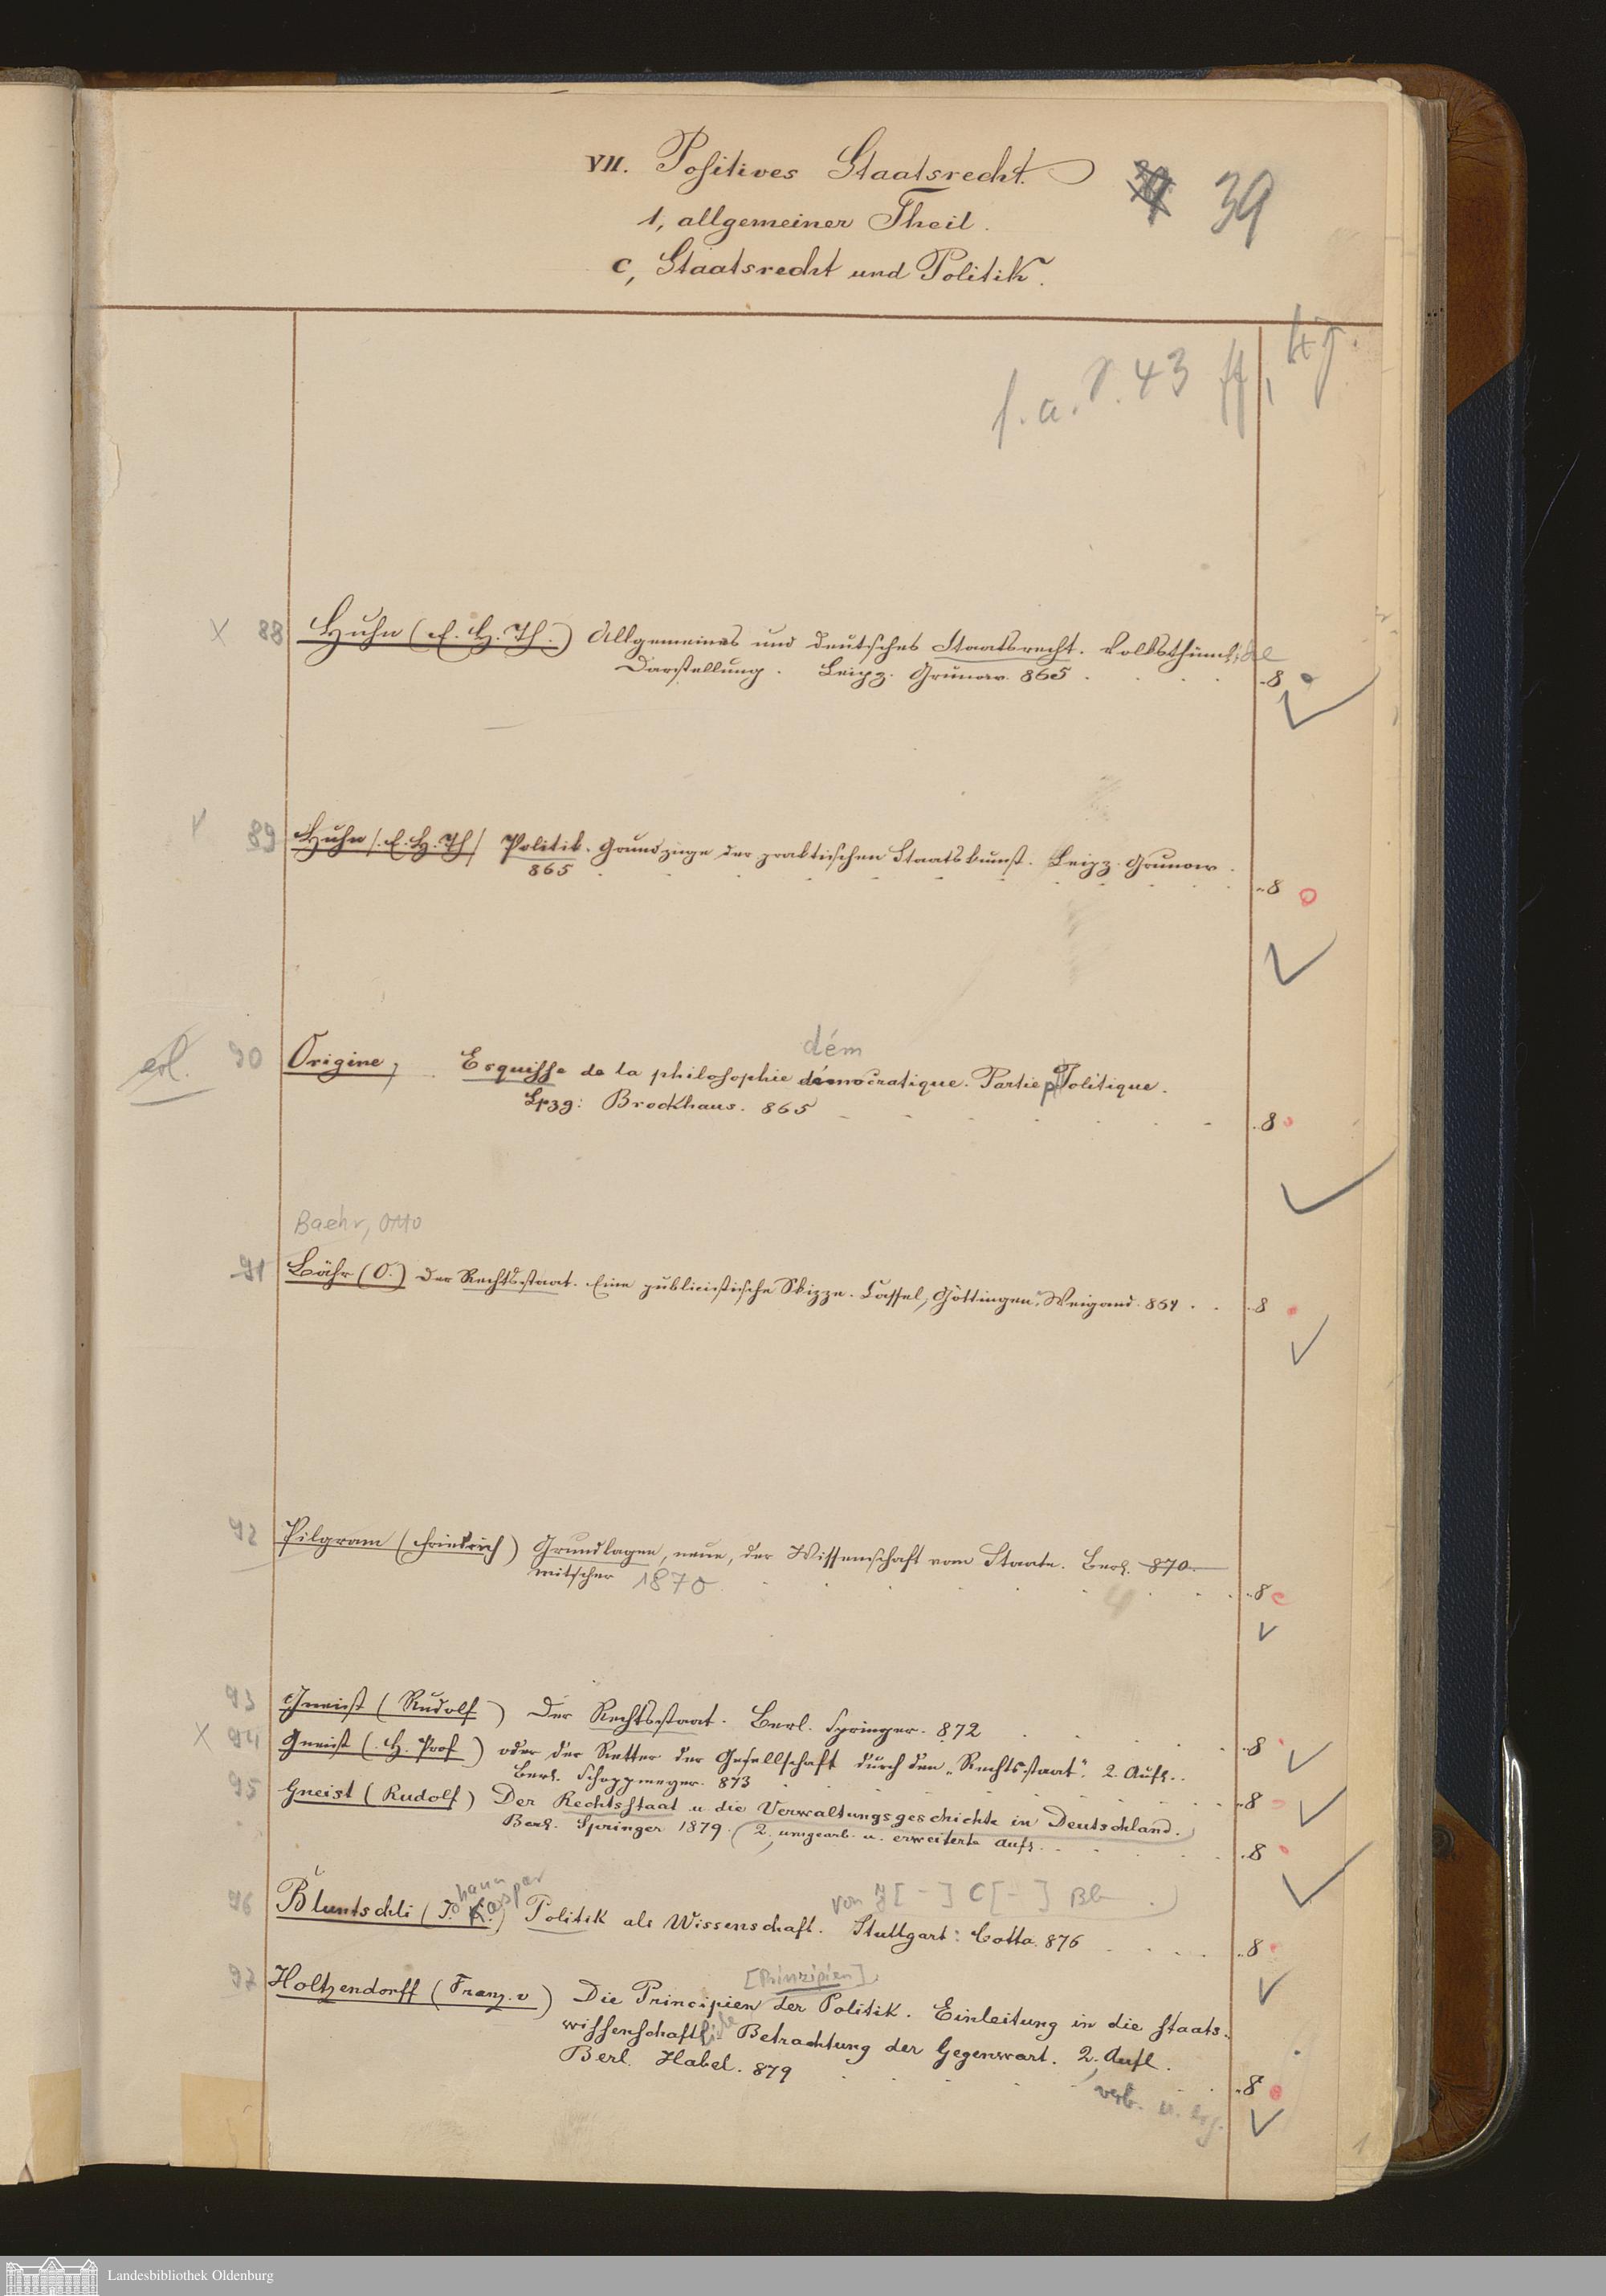 VII. Positives Staatsrecht.
39
1, allgemeiner Theil.
c, Staatsrecht und Politik.
s. a. S. 43 ff,
X 88 Huhn (E. H. Th.) Allgemeines und deutsches Staatsrecht. Volksthüml.
Darstellung. Leipz. Grunow. 865 . . . . 8
89 Huhn (E. H. Th) Politik. Grundzüge der praktischen Staatskunst. Leipz. Grunow.
865 . . . . 8
dém
erl. 90 Origine, Esquisse de la philosophie démocratique. Partie politique.
Lpzg: Brockhaus. 865 . . . . 8
Baehr, Otto
91 Bähr (O.) Der Rechtsstaat. Eine publicistische Skizze. Cassel, Göttingen, Weigand. 864 . . 8
92 Pilgram (Friedrich) Grundlagen, neue, der Wissenschaft vom Staate. Berl. 870.
Mitscher 1870 . . . . 8
93 Gneist (Rudolf) Der Rechtsstaat. Berl. Springer. 872 . . . . 8
X 94 Gneist (H. Prof) oder der Retter der Gesellschaft durch den „Rechtsstaat". 2. Aufl..
Berl. Schoppmeyer. 873 . . . . 8
95 Gneist (Rudolf) Der Rechtsstaat u. die Verwaltungsgeschichte in Deutschland.
Berl. Springer 1879. (2, umgearb. u. erweiterte Aufl. . . . 8
von J[-] C[-] Bl.)
96 Bluntschli (Johann Kaspar) Politik als Wissenschaft. Stuttgart: Cotta. 876 . . . . 8
[Prinzipien]
97 Holtzendorff (Franz. v) Die Principien der Politik. Einleitung in die staats-
wissenschaftliche Betrachtung der Gegenwart. 2. Aufl.
Berl. Habel. 879 . . . . 8
verb. u. erg.
1
Landesbibliothek Oldenburg